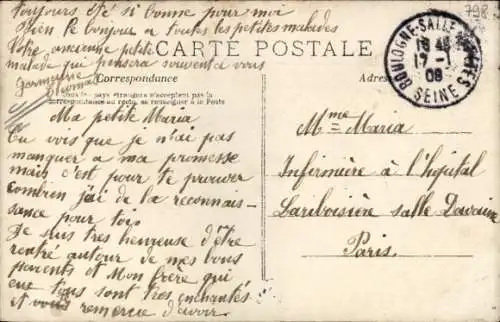 toujours été si bonne pour moi
Bien le bonjour a toutes les petites malades
Votre ancienne petite
malade qui pensera souvent a vous
Germaine
CARTE POSTALE
Correspondance
Tous les pays étrangers n'acceptent pas la
correspondance au recto, se renseigner à la Poste
Ma petite Maria
Tu vois que je n'ai pas
manquer a ma promesse
mais c'est pour te prouver
combien j'ai de la reconnais-
sance pour toi
Je suis tres heureuse d'être
rentré autour de mes bons
parents et Mon frère qui
eux tous sont tres enchantés
et vous remercie d'avoir
798
BOULOGNE-SUR-
17 -
08
SEINE
Mme Maria
Infirmière à l'hôpital
Lariboisière salle
Paris